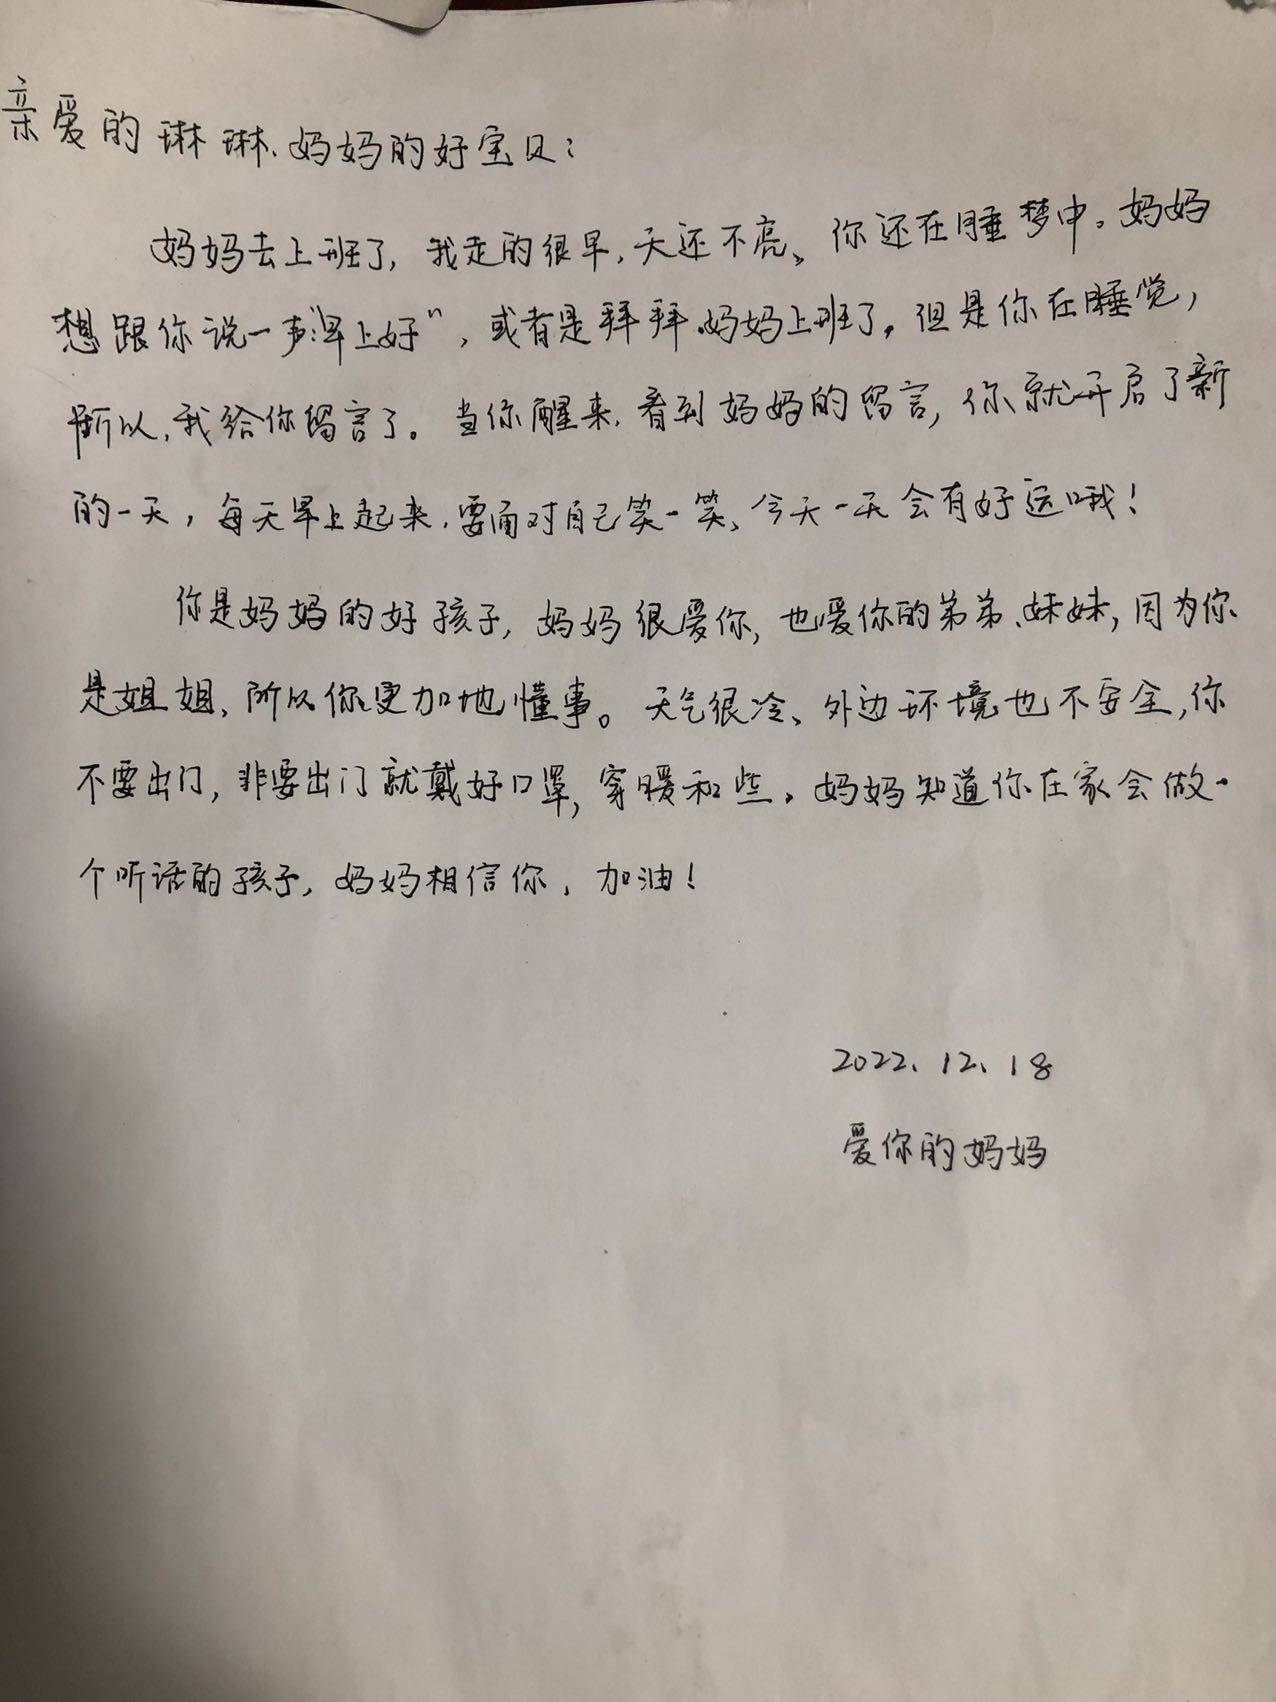 亲爱的琳琳、妈妈的好宝贝：
妈妈去上班了，我走的很早，天还不亮、你还在睡梦中。妈妈
想跟你说一声“早上好”，或者是拜拜.妈妈上班了。但是你在睡觉，
所以，我给你留言了。当你醒来，看到妈妈的留言，你就开启了新
的一天，每天早上起来，要面对自己笑一笑、今天一天会有好运哦！
你是妈妈的好孩子，妈妈很爱你，也爱你的弟弟、妹妹，因为你
是姐姐，所以你更加地懂事。天气很冷、外边环境也不安全，你
不要出门，非要出门就戴好口罩，穿暖和些。妈妈知道你在家会做一
个听话的孩子，妈妈相信你，加油！
2022、12、18
爱你的妈妈